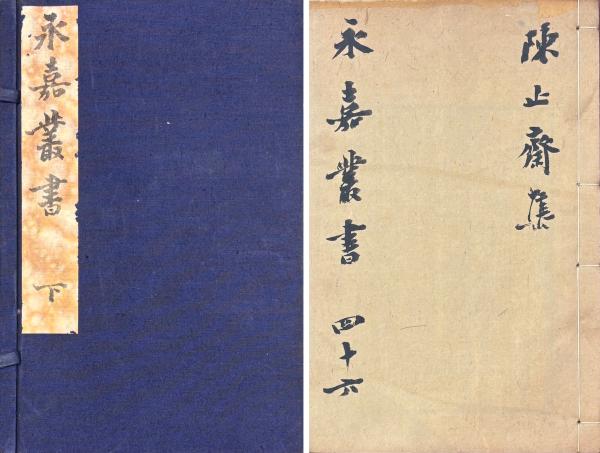 永嘉叢書 下
陳止齋集
永嘉叢書 四十六